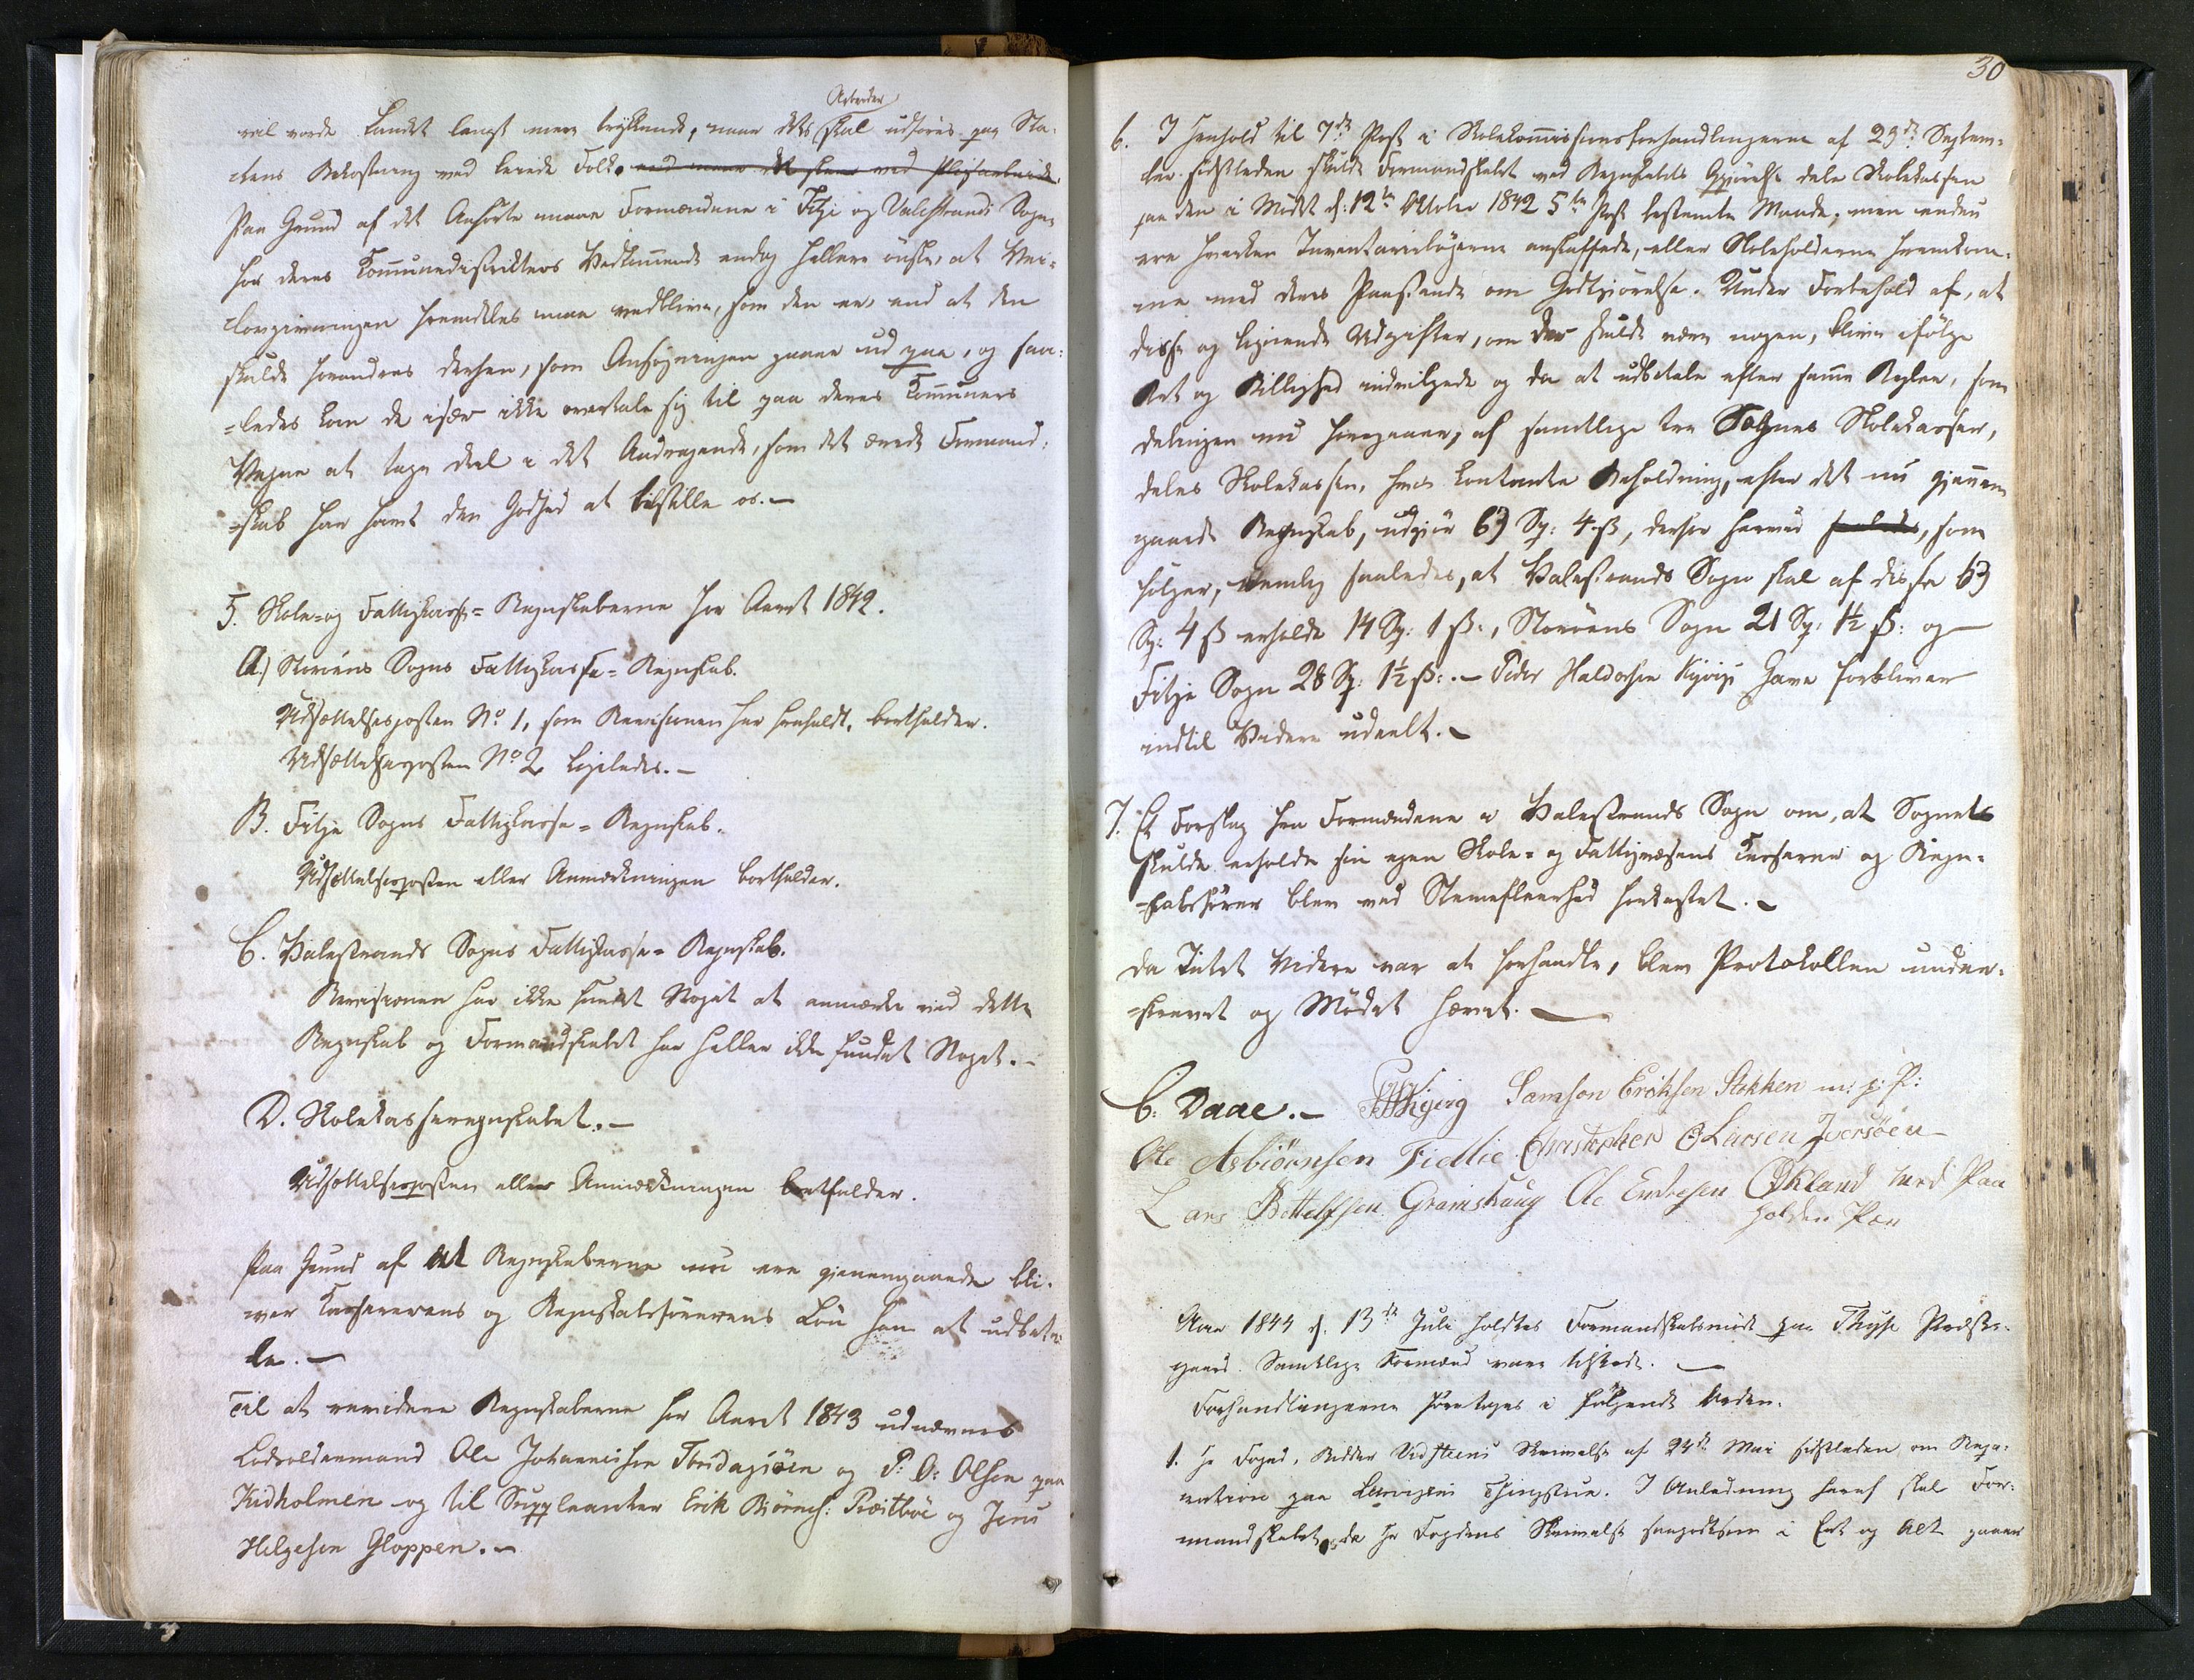 Arbeider
vil vorde Landet langt mere trykkende, naar dets skal udføres paa Sta-
tens Bekostning ved leiede Folk, end naar det skeer ved Pligtarbeide.
Paa Grund af det Anførte maae Formændene i Fitje og Valestrands Sogne
for deres Kommunedistrikters Vedkommende endog hellere ønske, at Vei-
lovgivningen fremdeles maa vedblive, som den er, end at den
skulde forandres derhen, som Ansøgningen gaaer ud paa, og saa-
=ledes kan de især ikke overtale sig til paa deres Kommuners
Vegne at tage Deel i det Andragende, som det ærede Formand-
=skab har havt den Godhed at tilstille os.-
5. Skole- og Fattigkasse-Regnskaberne for Aaret 1842.
A.) Storöens Sogns Fattigkasse-Regnskab.
Udsættelsesposten No 1, som Revisionen har frafaldt, bortfalder.
Udsættelsesposten No 2 ligeledes.-
B. Fitje Sogns Fattigkasse-Regnskab.
Udsættelsesposten eller Anmærkningen bortfalder.
C. Valestrands Sogns Fattigkasse-Regnskab.
Revisionen har ikke fundet Noget at anmærke ved dette
Regnskab og Formandskabet har heller ikke fundet Noget.-
D. Skolekasseregnskabet.-
Udsættelsesposten eller Anmærkningen bortfalder.
Paa Grund af at Regnskaberne nu ere gjennemgaaede bli-
ver Kassererens og Regnskabsførerens Løn ham at udbeta-
le.-
Til at revidere Regnskaberne for Aaret 1843 udnævnes
Lodsoldermand Ole Johannesen Tvedagiöen og P: O: Olsen paa
Kidholmen og til Suppleanter Erik Biörnes: Træitböe og Jens
Helgesen Gloppen.-
30
6. I Henhold til 7de Post i Skolekommissionsforhandlingerne af 29de Septem-
ber sidstleden skulde Formandskabet ved Regnskabets Opgjørelse dele Skolekassen
paa den i Mødet d: 12te Oktober 1842 5te Post bestemte Maade; men endnu
ere hverken Inventariebøgerne anskaffede, eller Skoleholderne fremkom-
ne med deres Paastande om Godtgjørelse. Under Forbehold af, at
disse og lignende Udgifter, om der skulde være nogen, blive ifølge
Ret og Billighed indvilgede og da at udbetale efter samme Regler, som
delingen nu foregaaer, af samtlige tre Sognes Skolekasser,
deles Skolekassen, hvis kontante Beholdning, efter det nu gjennem
gaaede Regnskab, udgjør 63 Sp: 4 ß, derfor herved saaledes, som
følger, nemlig saaledes, at Valestrands Sogn skal af disse 63
Sp: 4 ß erholde 14 Sp: 1 ß., Storöens Sogn 21 Sp: 1½ ß: og
Fitje Sogn 28 Sp: 1½ ß:.- Peder Haldorsen Kyvigs Gave forbliver
indtil Videre udeelt.-
7. Et Forslag fra Formændene i Valestrands Sogn om, at Sognets
skulde erholde sin egen Skole- og Fattigvæsens Kasserer og Regn-
=skabsfører blev ved Stemmefleerhed forkastet.-
Da Intet Videre var at forhandle, blev Protokollen under-
=skrevet og Mødet hævet.-
C. Daae.- Samson Eriksen Stokken m: p: P:
Ole Asbiörnsen Fiellie Christopher O Larsen Iversöen
Lars Botelfsen Gramshaug Ole Endresen Økland med Paa
holden Pen
Aar 1844 d. 13de Juli holdtes Formandskabsmøde paa Thyse Præste-
gaard. Samtlige Formænd vare tilstede.-
Forhandlingerne foretages i følgende Orden.
1. Hr Foged, Ridder Vedsteens Skrivelse af 24de Mai sidstleden om Repa-
ration paa Leervigens Thingstue. I Anledning heraf skal For-
mandskabet, da Hr Fogdens Skrivelse i Eet og Alt gaaer